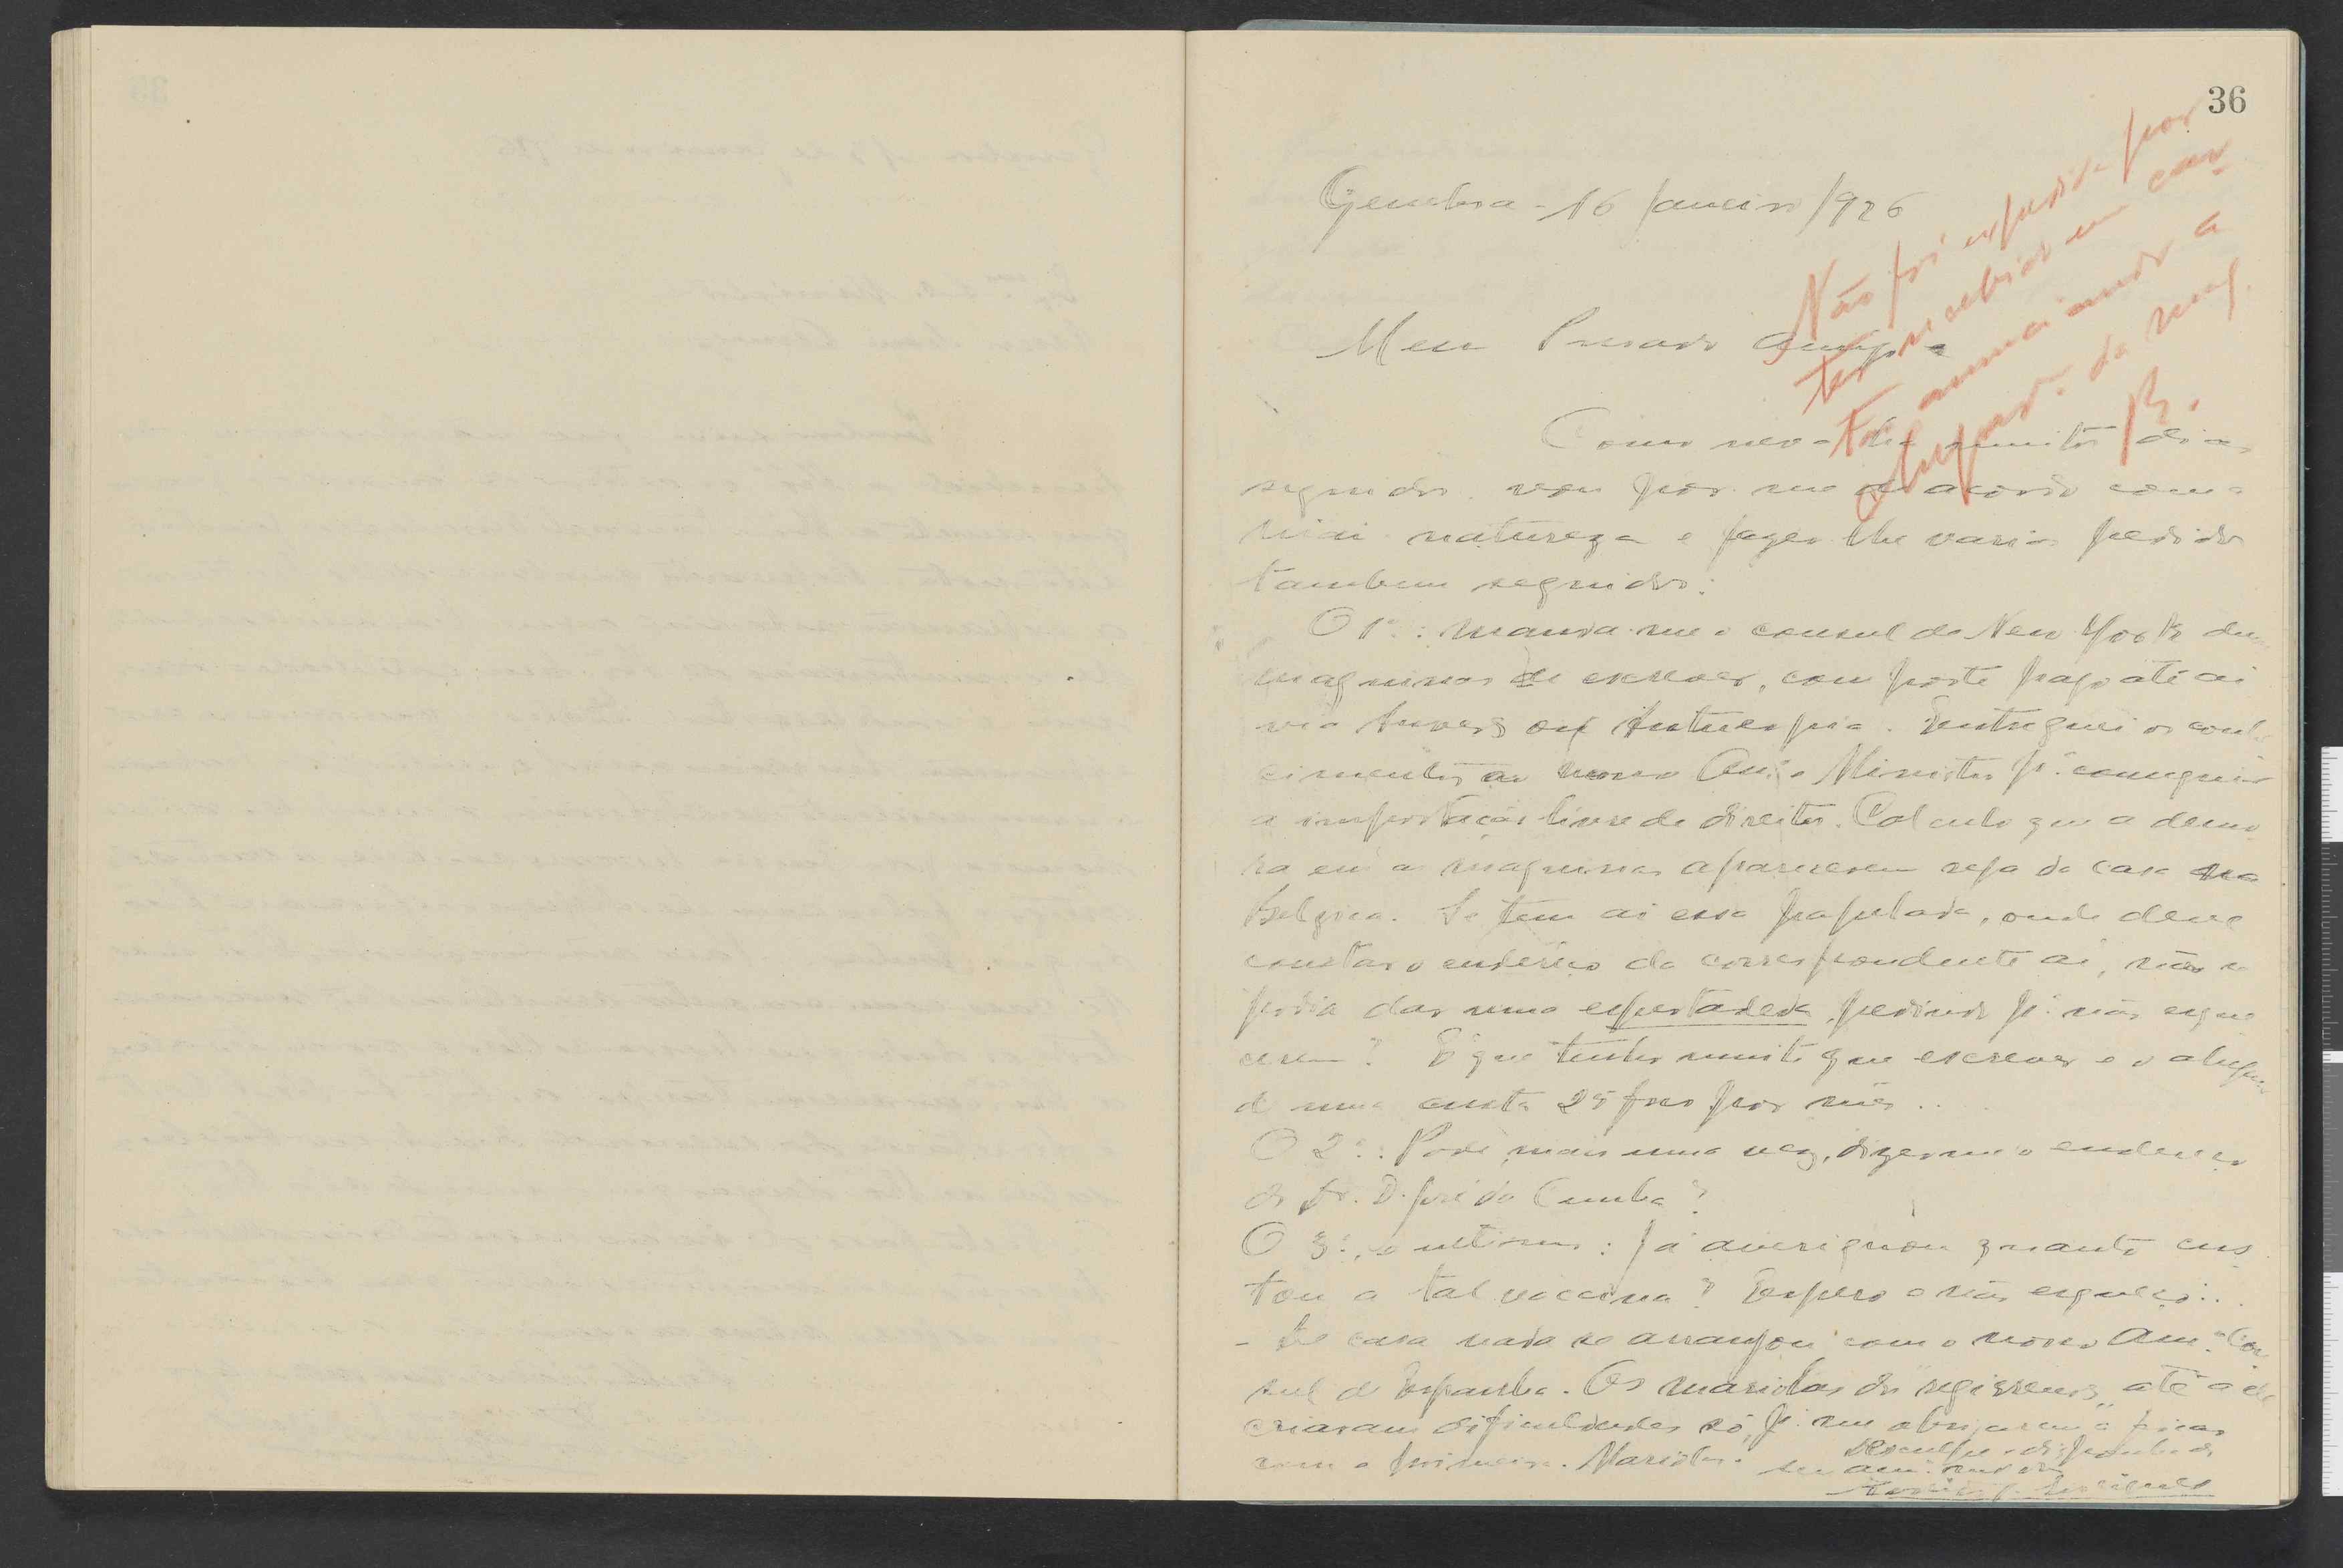 36
Genebra - 16 Janeiro / 926
Não foi expedida por
ter recebido um car
tão anunciando a
chegada da maq.
B.
Meu Presado Amigo
Como nevo ha muitos dias
seguidos vou por me de acordo com a
mãi natureza e fazer-lhe varios pedidos
tambem seguidos:
O 1º: manda-me o consul de New York duas
maquinas de escrever, com porte pago até ai
via Anvers ou Antuerpia. Entreguei os conhe
cimentos ao nosso Amº o Ministro pª conseguir
a importação livre de direitos. Calculo que a demo
ra em as maquinas aparecerem seja da casa na
Belgica. Se tem ai essa papelada, onde deve
constar o enderêço do correspondente ai, não se
podia dar uma espertadela, pedindo pª não esque
cerem? É que tenho muito que escrever e o aluguer
de uma custa 25 frcs por mês..
O 2º: Pode, mais uma vez, dizer-me o endereço
do Dr. D. José da Cunha?
O 3º, e ultimo: Já averiguou quanto cus
tou a tal vaccina? Espero o não esqueça...
- De casa nada se arranjou com o nosso Amº Con
sul de Espanha. Os mariolas dos regisseurs até a ele
criaram dificuldades só pª me obrigarem a ficar
com a primeira. Mariolas.
Desculpe e disponha do
seu amº